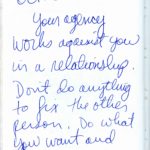 Your agency
works against you
in a relationship.
Don't do anything
to fix the other
person. Do what
you want and